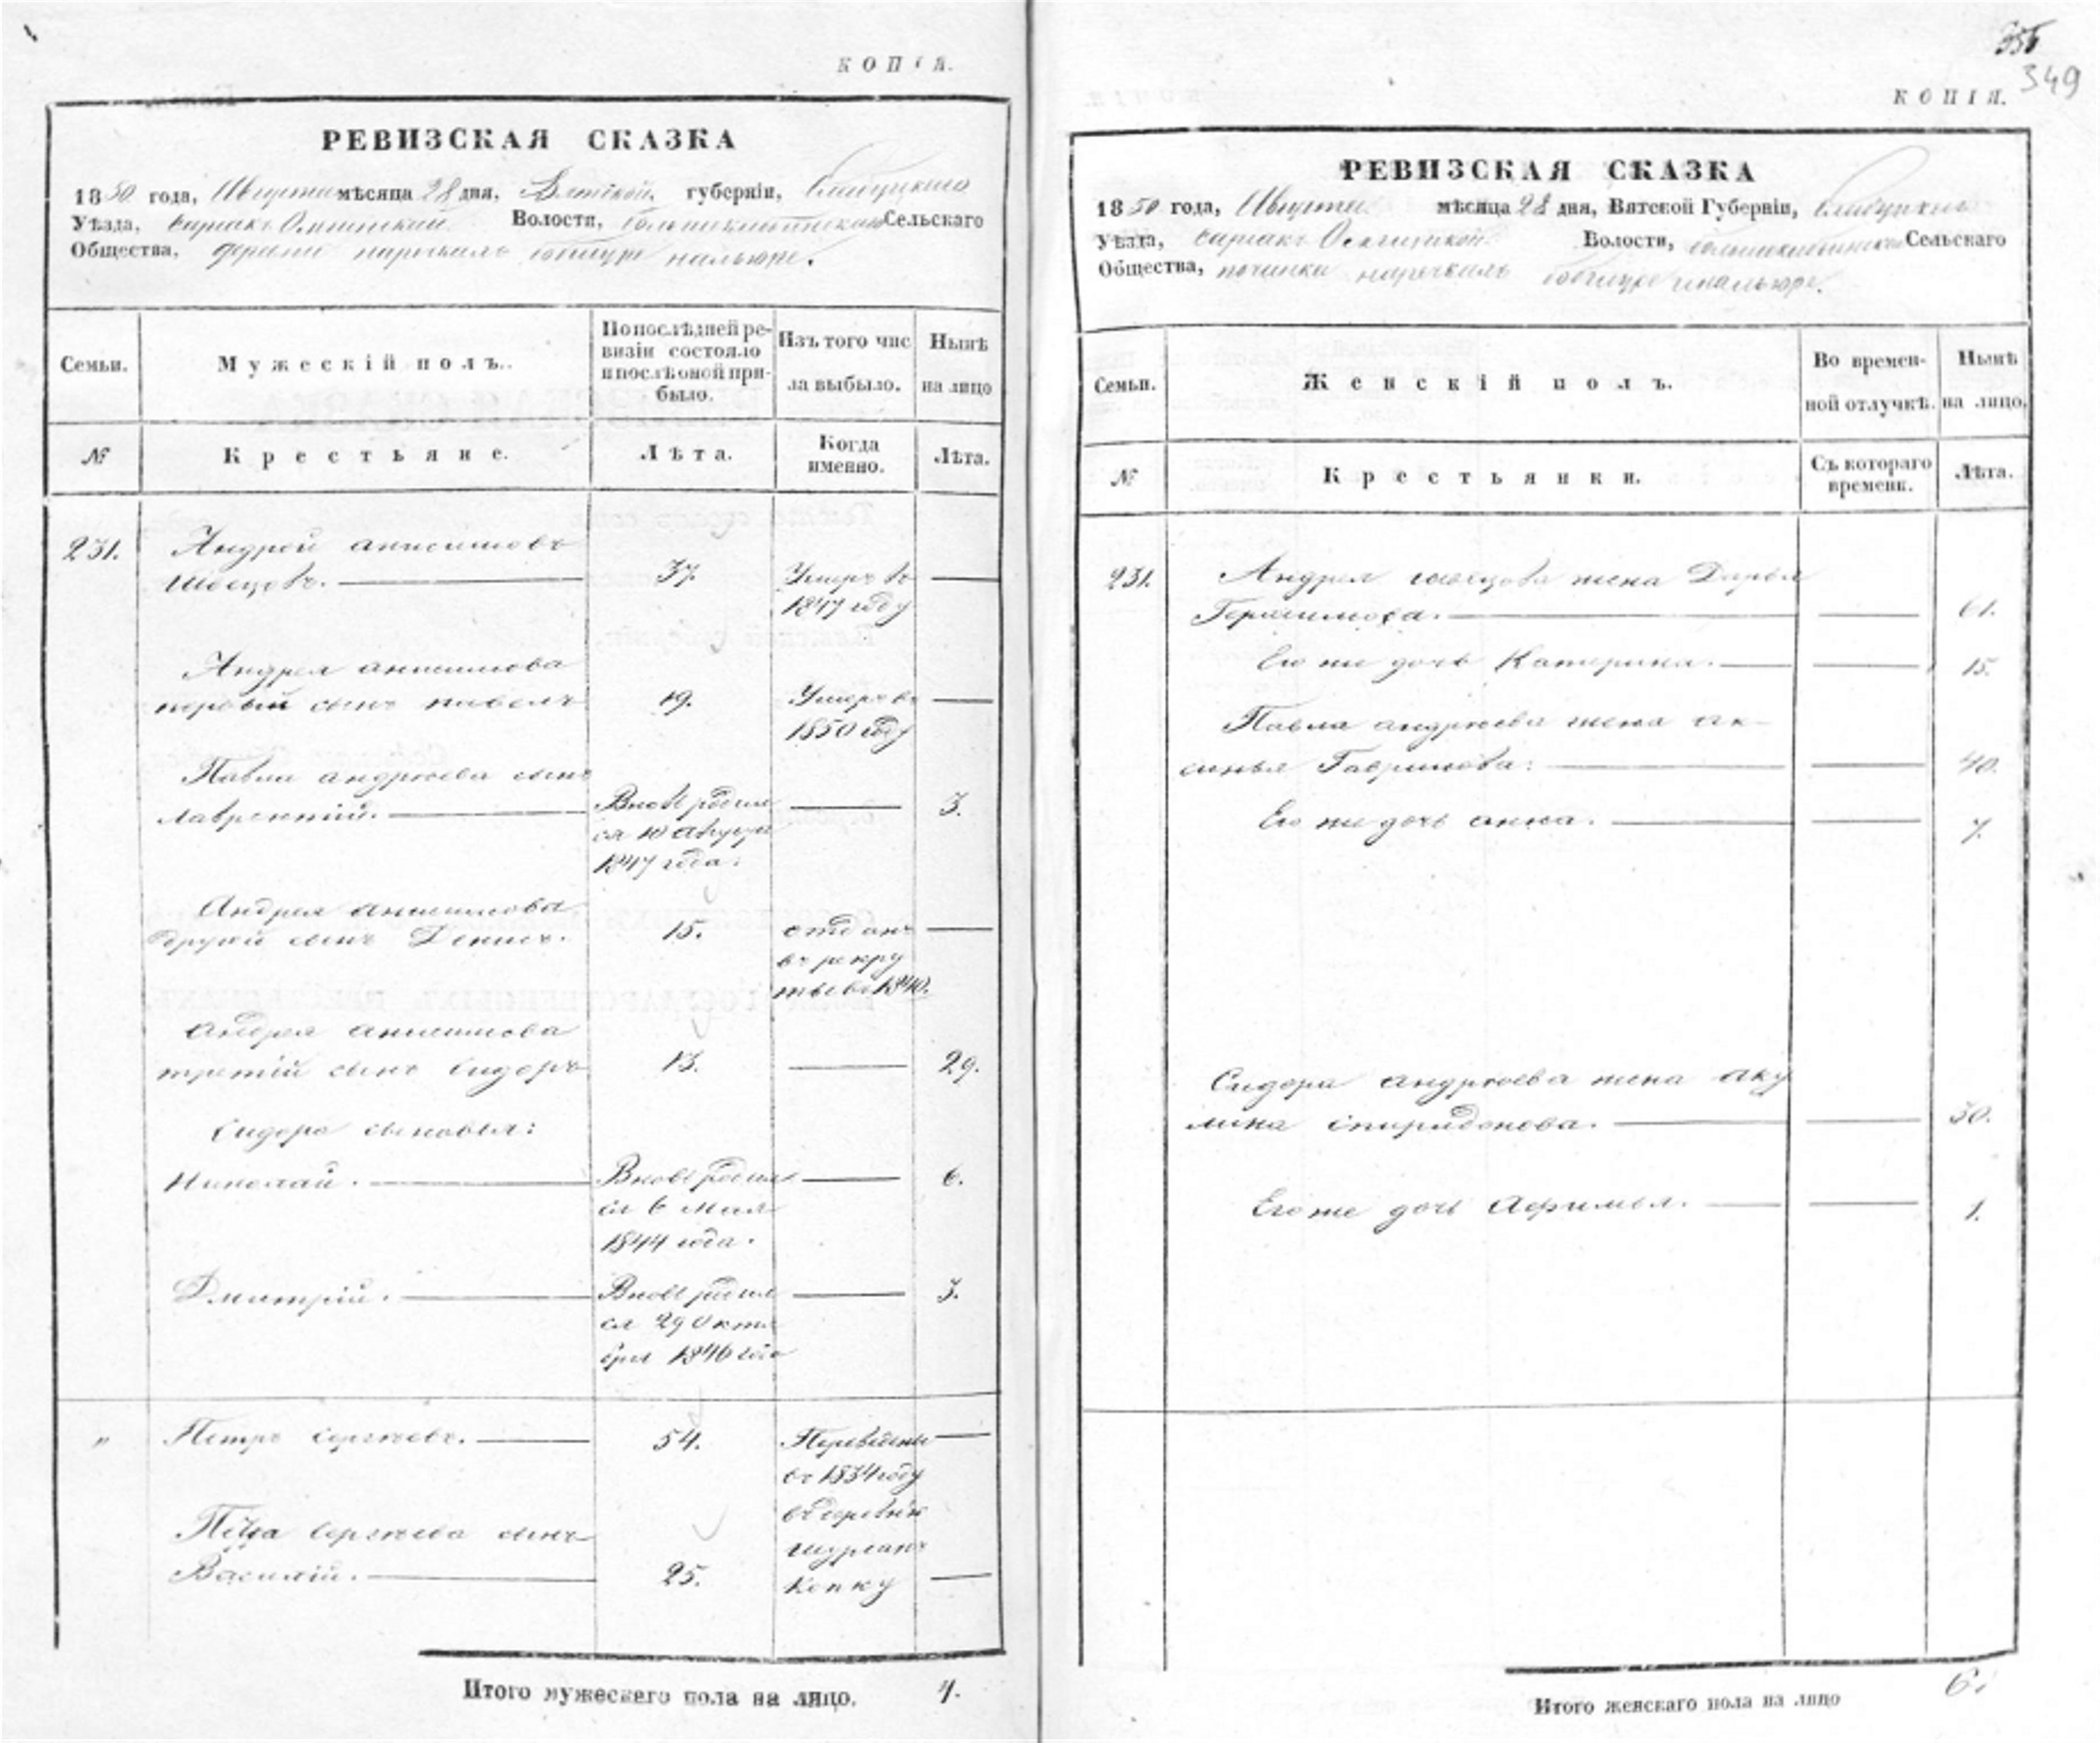 КОПІЯ.
РЕВИЗСКАЯ СКАЗКА
1850 года, Августа мѣсяца 28 дня, Вятской губерніи,
Уѣзда, Волости, Сельскаго
Общества,
Семьи.
Мужескій полъ.
По послѣдней ре-
визіи состояло
и послѣ оной при-
было.
Изъ того чис
ла выбыло.
Нынѣ
на лицо
№
Крестьяне.
Лѣта.
Когда
именно.
Лѣта.
231.
Андрей анисимовъ
Швецовъ.
37.
Умеръ въ
1847 году
Андрея анисимова
первый сынъ павелъ
19.
Умеръ въ
1850 году
Павла андреева сынъ
лаврентій.
Вновь родил
ся 10 августа
1847 года.
3.
Андрея анисимова
другой сынъ Денисъ.
15.
отданъ
въ рекру
ты въ 1840.
Андрея анисимова
третій сынъ сидоръ
13.
29.
Сидора сыновья:
Николай.
Вновь родил
ся 6 мая
1844 года.
6.
Дмитрій.
Вновь родил
ся 29 октя
бря 1846 года
3.
"
Петръ сергѣевъ.
54.
Переведены
въ 1834 году
въ деревню
Копку
Петра сергѣева сынъ
Василій.
25.
Итого мужескаго пола на лицо.
4.
355
349
КОПІЯ.
РЕВИЗСКАЯ СКАЗКА
1850 года, Августа мѣсяца 28 дня, Вятской Губерніи,
Уѣзда, Волости, Сельскаго
Общества, починка
Семьи.
Женскій полъ.
Во времен-
ной отлучкѣ.
Нынѣ
на лицо.
№
Крестьянки.
Съ котораго
времени.
Лѣта.
231.
Андрея швецова жена Дарья
Герасимова.
61.
Его же дочь Катерина.
15.
Павла андреева жена ак-
синья Гаврилова:
40.
Его же дочь анна.
7.
Сидора андреева жена аку
лина спиридонова.
30.
Его же дочь Афимья.
1.
Итого женскаго пола на лицо
6.